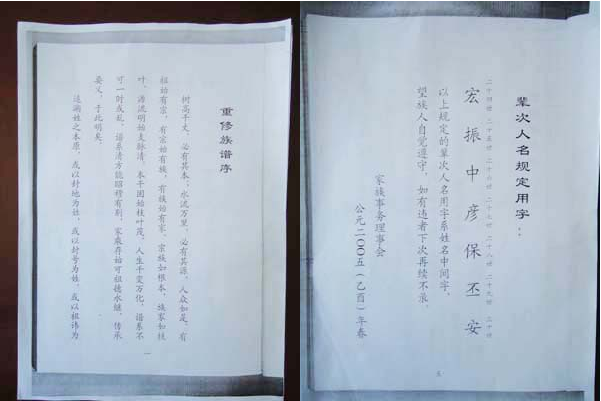 重修族谱序
树高千丈,必有其本;水流万里,必有其源,人众如是。有
祖始有宗,有宗始有族,有族始有家,宗族如根本,族家如枝
叶。源流明始支脉清,本干固始枝叶茂。人生千变万化,谱系不
可一时或乱,谱系清方能昭穆有别,家乘存始可祖德永继,传承
要义,于此明矣。
追溯姓之本原,或以封地为姓,或以封号为姓,或以祖讳为
一
辈次人名规定用字
二十四世 二十五世 二十六世 二十七世 二十八世 二十九世 三十世
宏 振 中 彦 保 丕 安
以上规定的辈次人名用字系姓名中间字,
望族人自觉遵守,如有违者下次再续不录。
家族事务理事会
公元二〇〇五(乙酉)年春